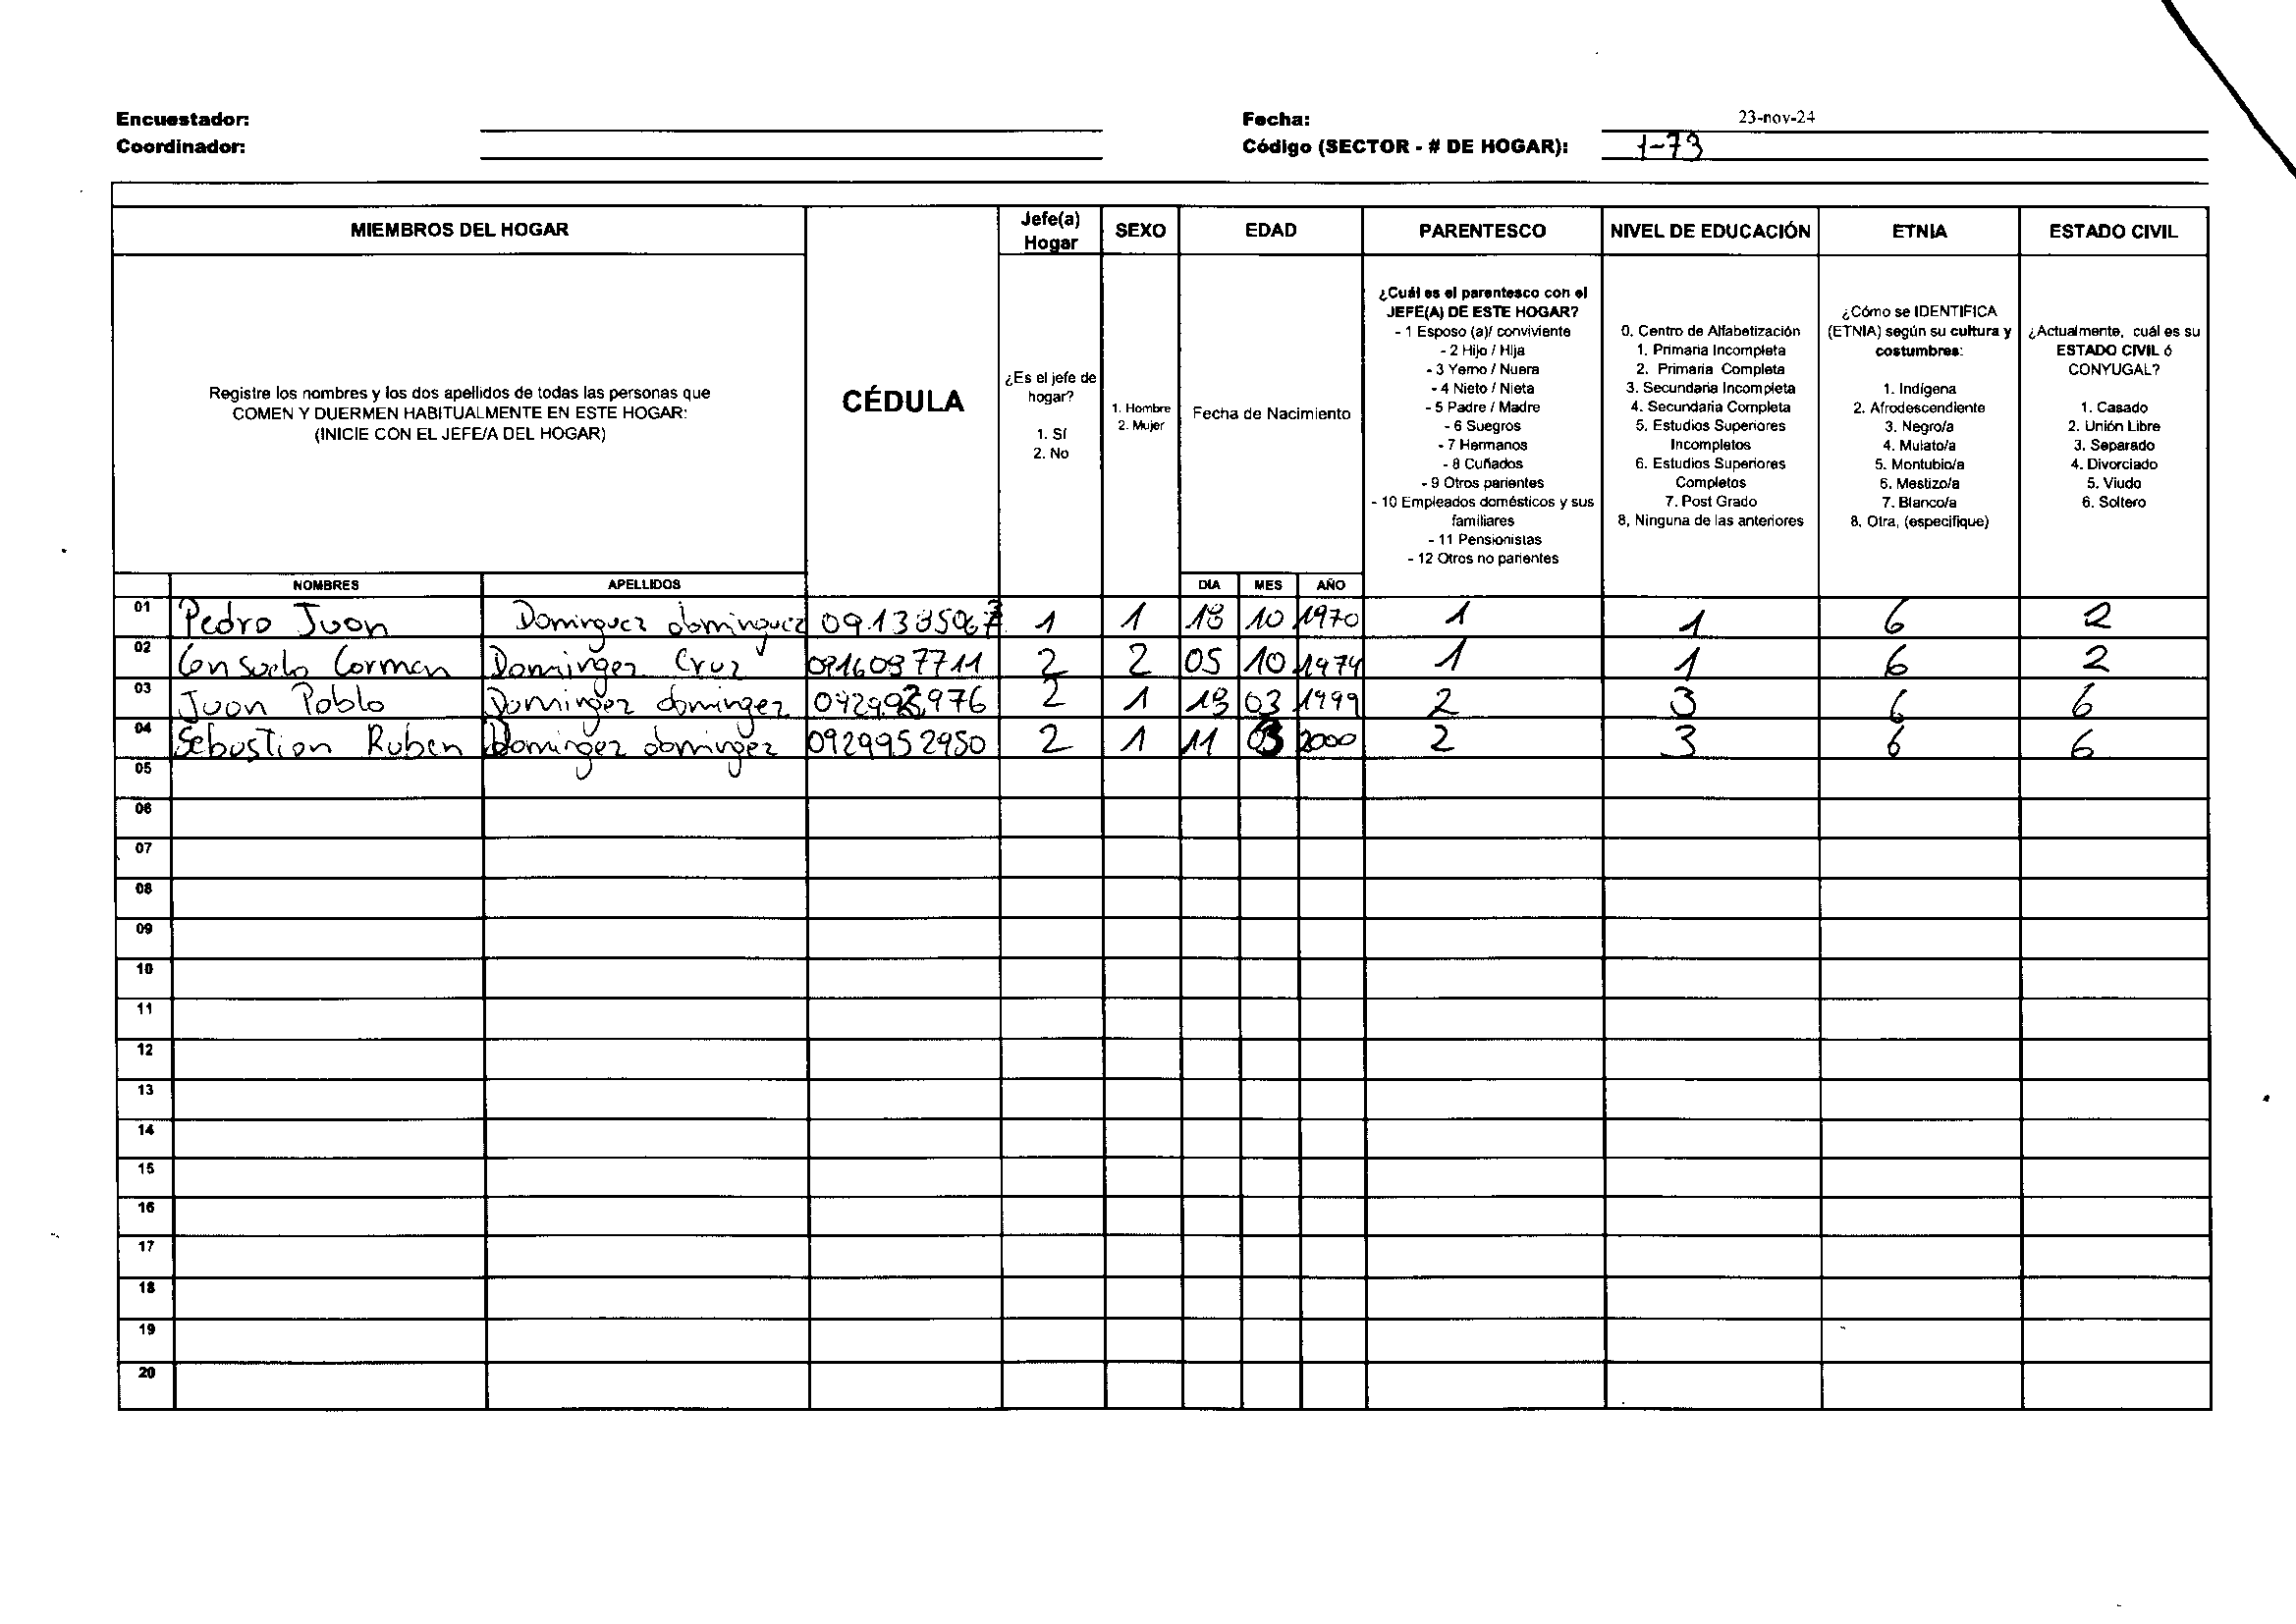 Encuestador:
Coordinador:
Fecha: 23-nov-24
Código (SECTOR - # DE HOGAR): 1-73
MIEMBROS DEL HOGAR
Registre los nombres y los dos apellidos de todas las personas que
COMEN Y DUERMEN HABITUALMENTE EN ESTE HOGAR:
(INICIE CON EL JEFE/A DEL HOGAR)
CÉDULA
Jefe(a)
Hogar
¿Es el jefe de
hogar?
1. Sí
2. No
SEXO
1. Hombre
2. Mujer
EDAD
Fecha de Nacimiento
PARENTESCO
¿Cuál es el parentesco con el
JEFE(A) DE ESTE HOGAR?
- 1 Esposo (a)/ conviviente
- 2 Hijo / Hija
- 3 Yerno / Nuera
- 4 Nieto / Nieta
- 5 Padre / Madre
- 6 Suegros
- 7 Hermanos
- 8 Cuñados
- 9 Otros parientes
- 10 Empleados domésticos y sus
familiares
- 11 Pensionistas
- 12 Otros no parientes
NIVEL DE EDUCACIÓN
0. Centro de Alfabetización
1. Primaria Incompleta
2. Primaria Completa
3. Secundaria Incompleta
4. Secundaria Completa
5. Estudios Superiores
Incompletos
6. Estudios Superiores
Completos
7. Post Grado
8, Ninguna de las anteriores
ETNIA
¿Cómo se IDENTIFICA
(ETNIA) según su cultura y
costumbres:
1. Indígena
2. Afrodescendiente
3. Negro/a
4. Mulato/a
5. Montubio/a
6. Mestizo/a
7. Blanco/a
8, Otra, (especifique)
ESTADO CIVIL
¿Actualmente, cuál es su
ESTADO CIVIL ó
CONYUGAL?
1. Casado
2. Unión Libre
3. Separado
4. Divorciado
5. Viudo
6. Soltero
NOMBRES APELLIDOS DIA MES AÑO
01 Pedro Juan Dominguez dominguez 1 1 18 10 1970 1 1 6 2
02 Consuelo Carmen Dominguez Cruz 0916097711 2 2 05 10 1974 1 1 6 2
03 Juan Pablo Dominger dominger 2 1 19 03 1999 2 3 6 6
04 Sebastian Ruben Dominger dominger 0929952950 2 1 11 03 2000 2 3 6 6
05
06
07
08
09
10
11
12
13
14
15
16
17
18
19
20